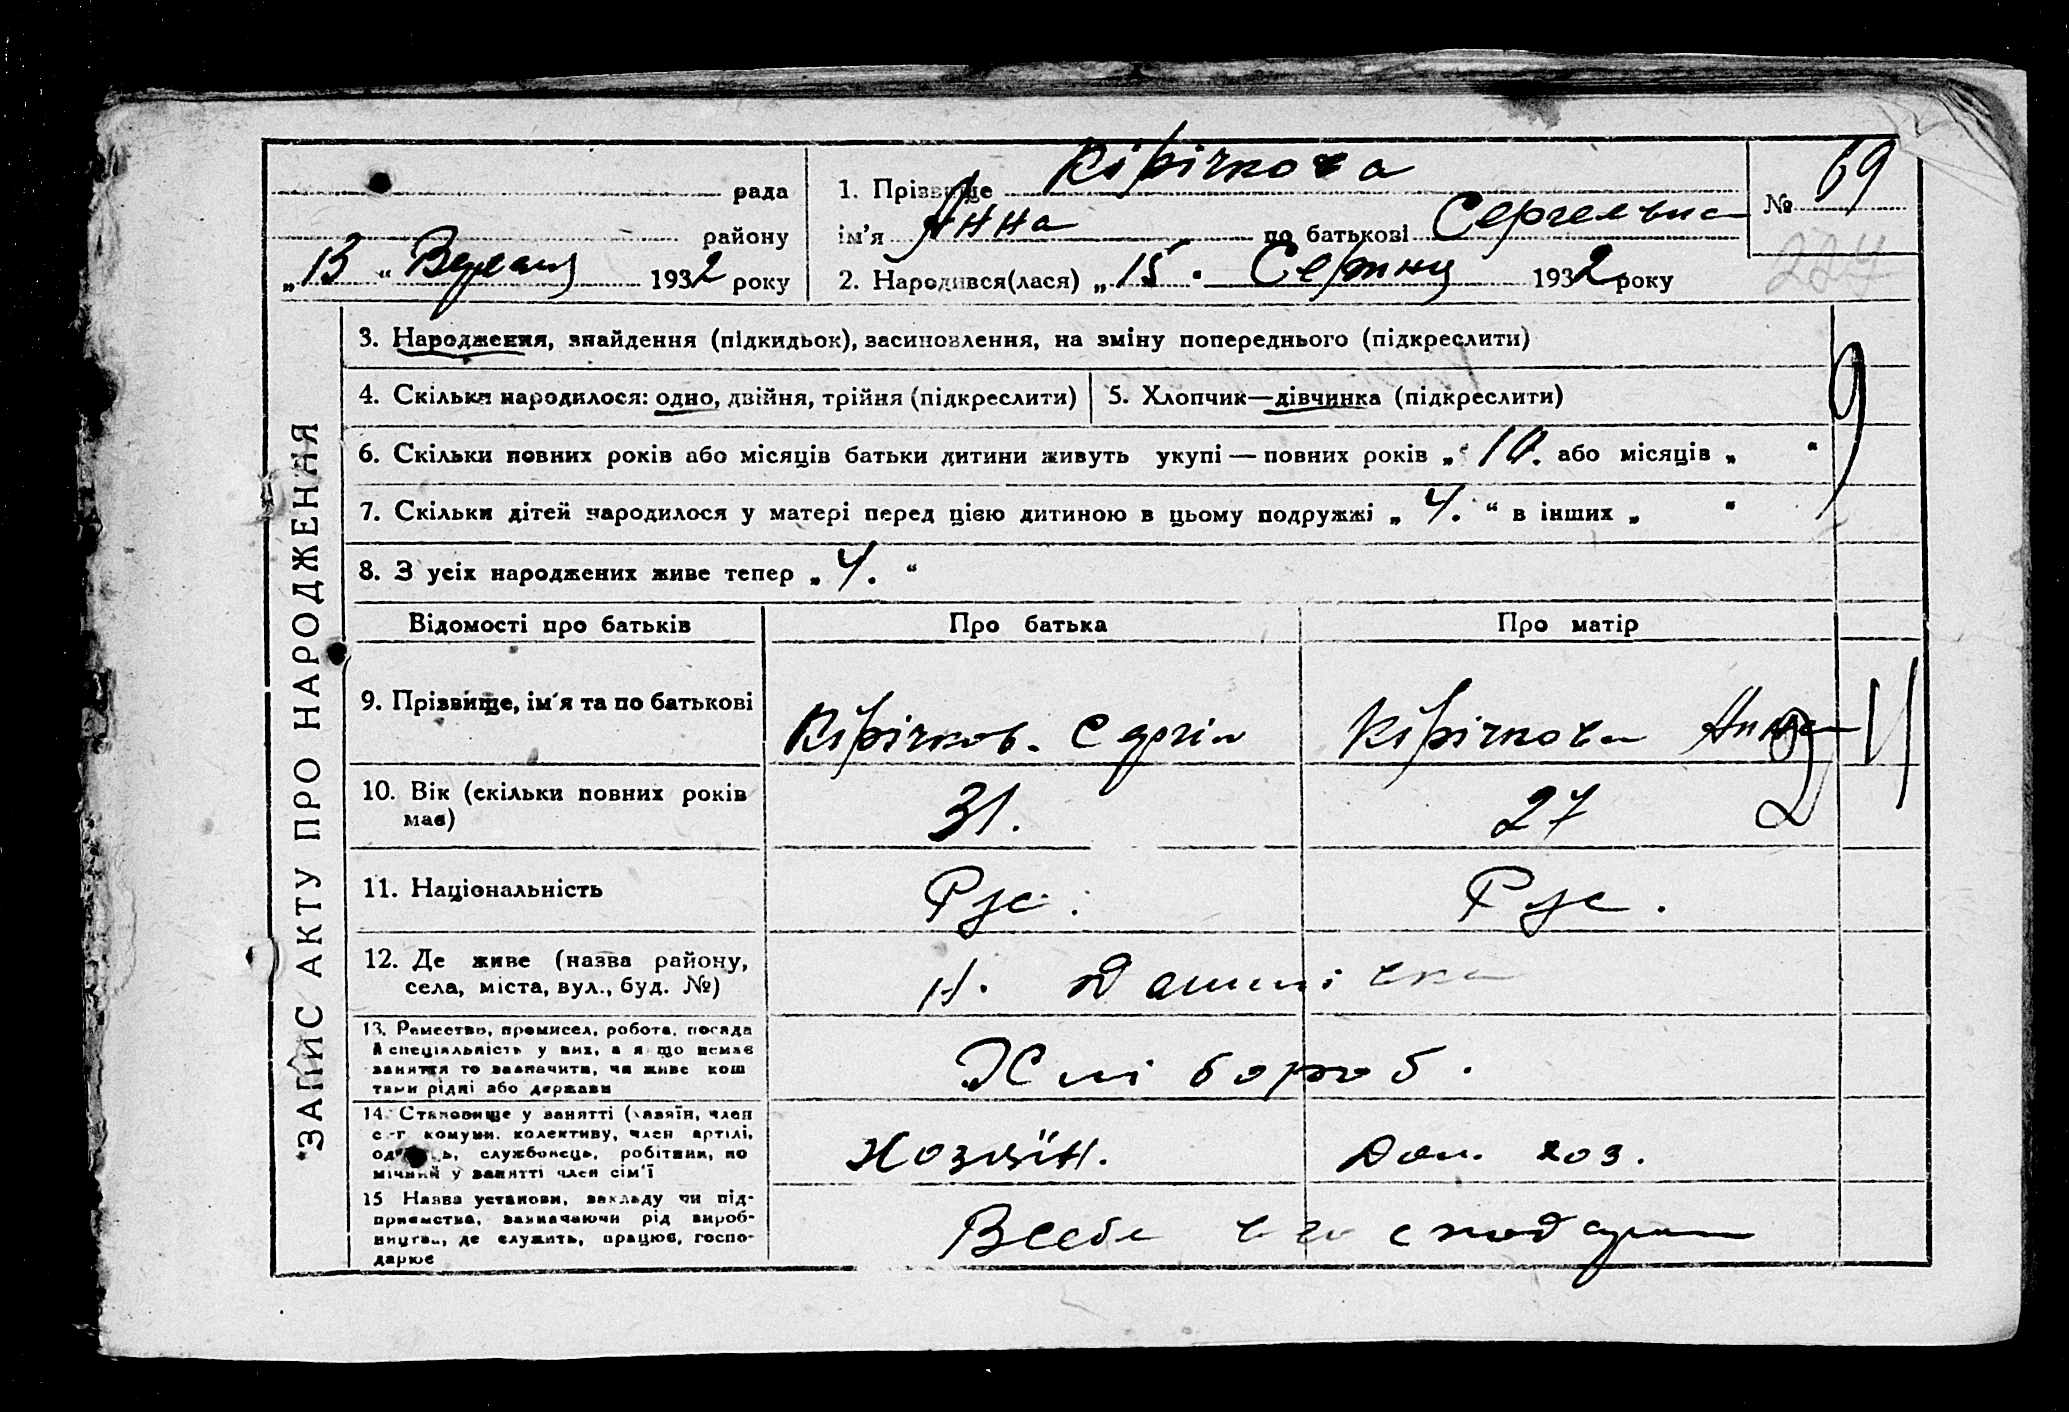 рада
району
„13“ Вересня 1932 року
1. Прізвище Кірічкова
ім'я Анна по батькові Сергеевна
2. Народився(лася) „15. Серпня 1932 року
№ 69
224
ЗАПИС АКТУ ПРО НАРОДЖЕННЯ
3. Народження, знайдення (підкидьок), засиновлення, на зміну попереднього (підкреслити)
4. Скільки народилося: одно, двійня, трійня (підкреслити)
5. Хлопчик—дівчинка (підкреслити)
6. Скільки повних років або місяців батьки дитини живуть укупі — повних років „ 10. або місяців „ “
7. Скільки дітей народилося у матері перед цією дитиною в цьому подружжі „ 4. “ в інших „ “
8. З усіх народжених живе тепер „ 4. “
Відомості про батьків
Про батька
Про матір
9. Прізвище, ім'я та по батькові
Кірічков. Сергій
Кірічкова Анна
10. Вік (скільки повних років
має)
31.
27
11. Національність
Рус.
Рус.
12. Де живе (назва району,
села, міста, вул., буд. №)
Н.
13. Ремество, промисел, робота, посада
й спеціяльність у них, а якщо немає
заняття то зазначити, чи живе кош
тами рідні або держави
Хлібороб.
14. Становище у занятті (хазяїн, член
с.-г. комуни, колективу, член артілі,
од ь, службовець, робітник, по
мічний у занятті член сім'ї
Хозяїн.
Дом. хоз.
15 Назва установи, закладу чи під-
приємства, зазначаючи рід вироб-
ництва, де служить, працює, госпо-
дарює
В себе в господарстві